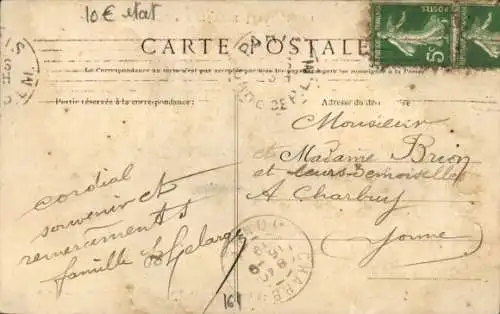 10€ état
CARTE POSTALE
La Correspondance au verso n'est pas acceptée par tous les pays étrangers
Partie réservée à la correspondance:
Adresse du
Monsieur
et Madame Brion
et leurs Demoiselles
A Charbuy
Yonne
cordial
souvenir et
remerciements
famille
5c
POSTES
PARIS
CHARB
16